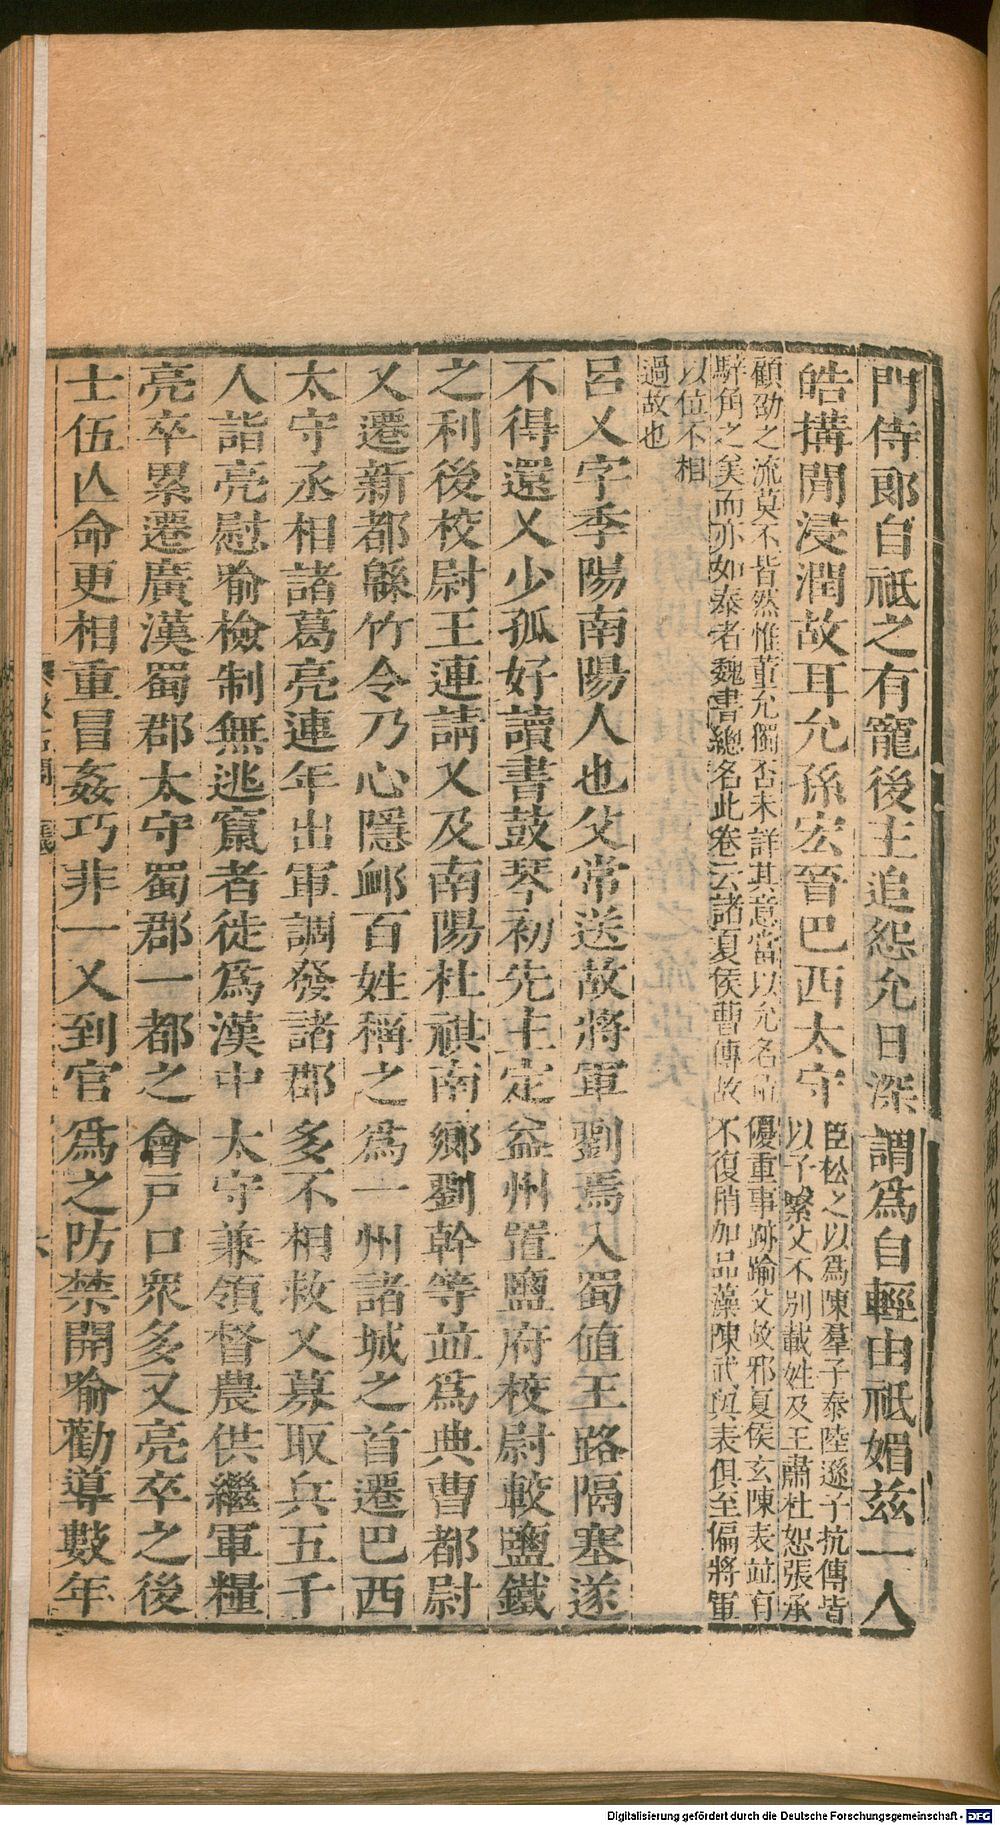 門侍郎自祗之有寵後主追怨允日深謂爲自輕由祗媚兹一人
皓搆閒浸潤故耳允孫宏晉巴西太守
臣松之以爲陳羣子泰陸遜子抗傳皆
以子繫父不別載姓及王肅杜恕張承
顧劭之流莫不皆然惟董允獨否未詳其意當以允名位優重事跡踰父故邪夏侯玄陳表並有
騂角之美而亦如泰者魏書總名此卷云諸夏侯曹傳故不復稍加品藻陳武與表俱至偏將軍
以位不相
過故也
呂乂字季陽南陽人也父常送故將軍劉焉入蜀値王路隔塞遂
不得還乂少孤好讀書鼓琴初先主定益州置鹽府校尉較鹽鐵
之利後校尉王連請乂及南陽杜祺南鄉劉幹等並爲典曹都尉
乂遷新都緜竹令乃心隱卹百姓稱之爲一州諸城之首遷巴西
太守丞相諸葛亮連年出軍調發諸郡多不相救乂募取兵五千
人詣亮慰喻檢制無逃竄者徙爲漢中太守兼領督農供繼軍糧
亮卒累遷廣漢蜀郡太守蜀郡一都之會戸口衆多又亮卒之後
士伍亾命更相重冒姦巧非一乂到官爲之防禁開喻勸導數年
Digitalisierung gefördert durch die Deutsche Forschungsgemeinschaft - DFG